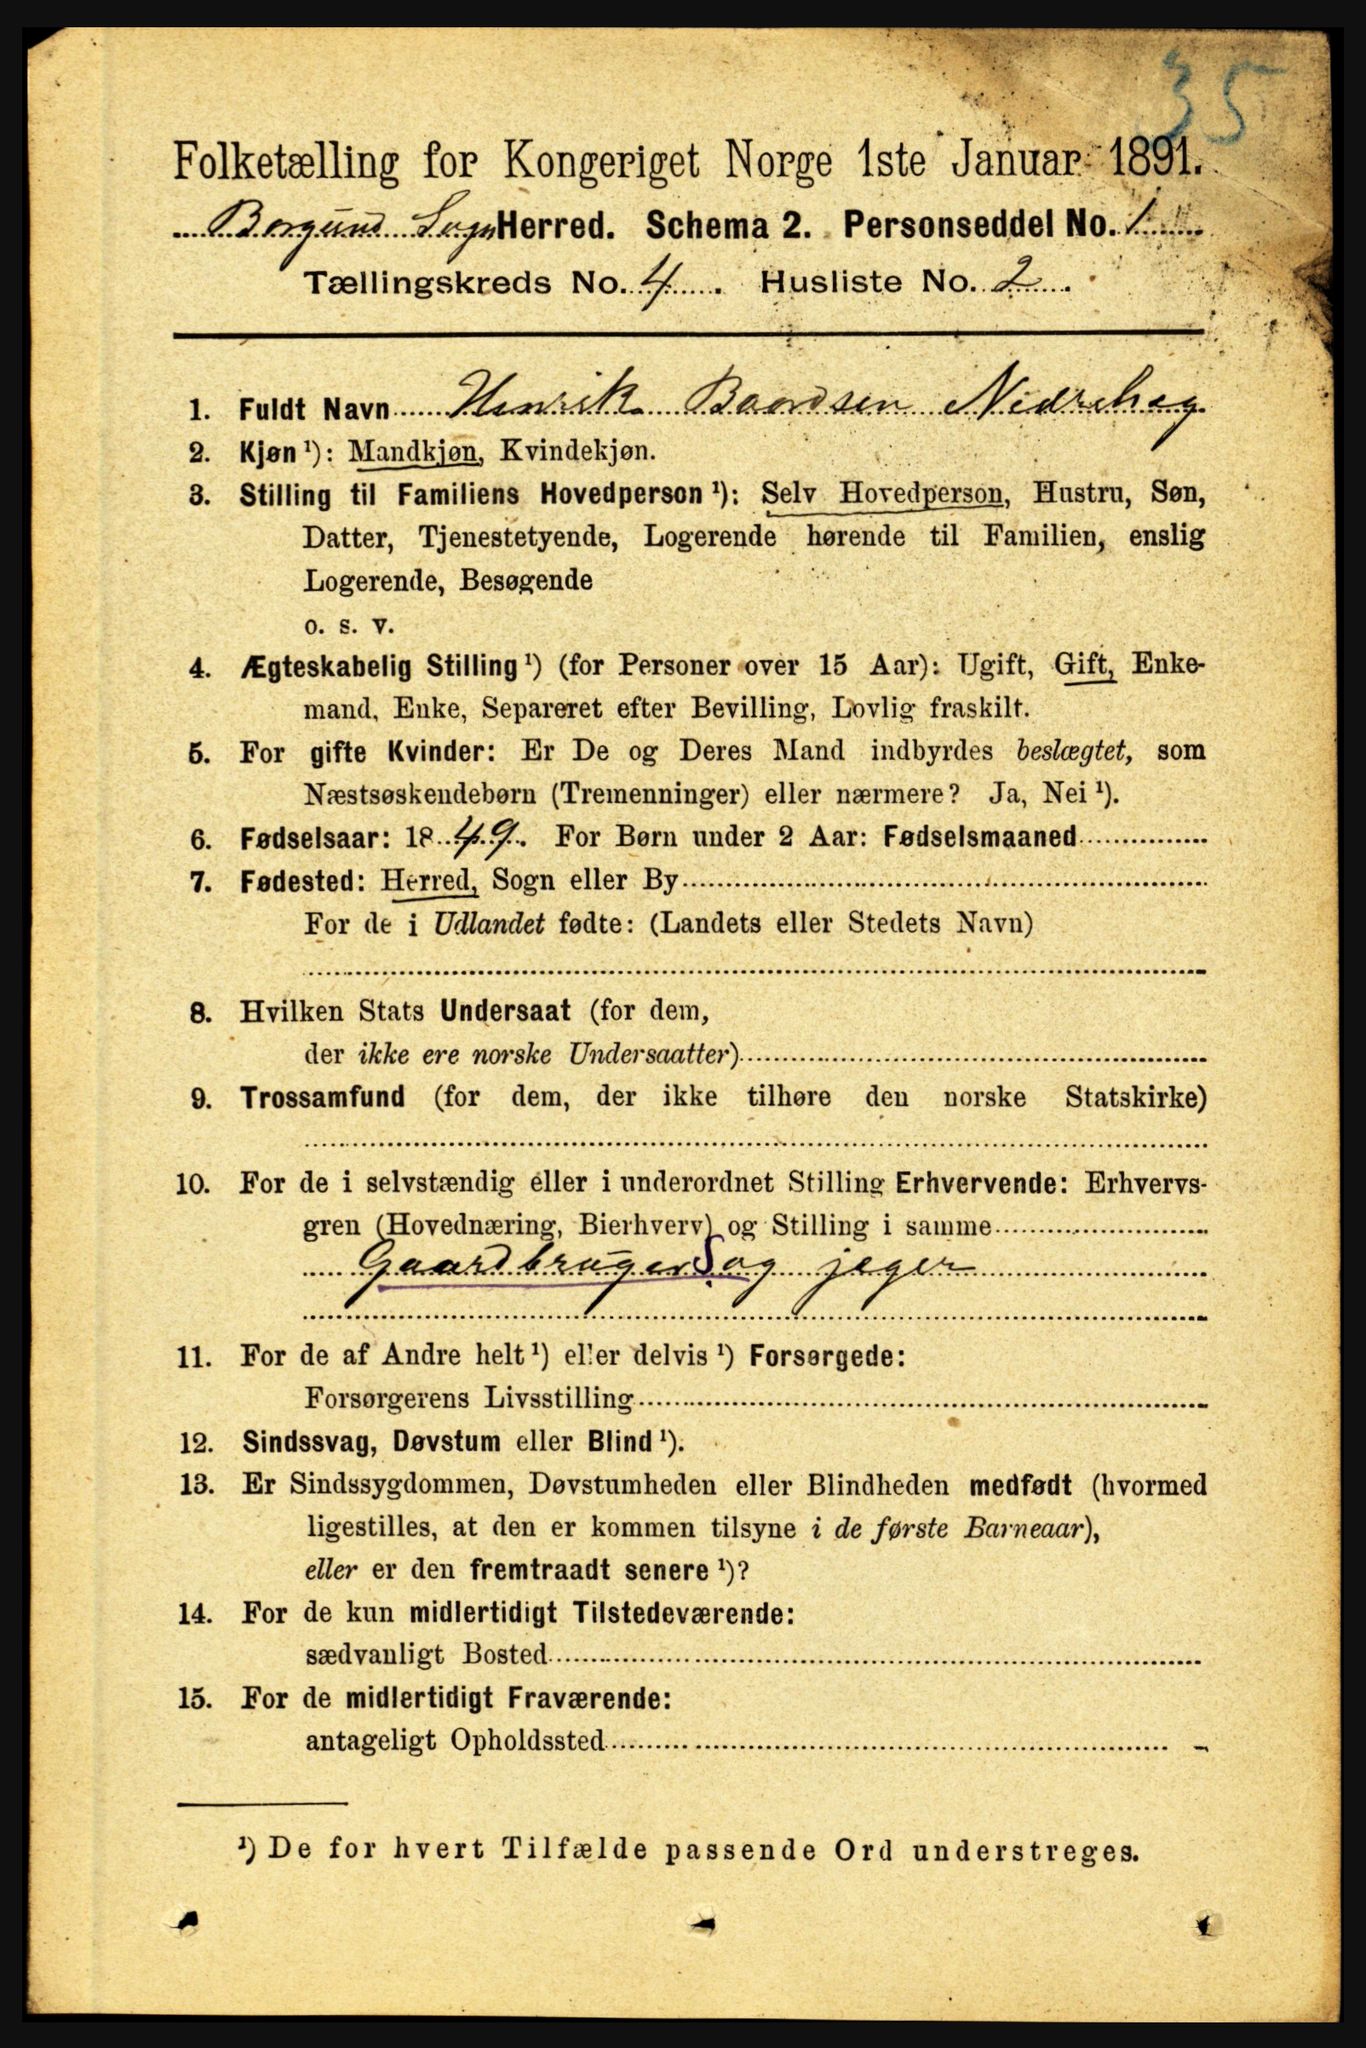 35
Folketælling for Kongeriget Norge 1ste Januar 1891.
Borgund Sogn Herred. Schema 2. Personseddel No. 1
Tællingskreds No. 4. Husliste No. 2.
1. Fuldt Navn Henrik Baardsen Nedreheg
2. Kjøn ¹): Mandkjøn, Kvindekjøn.
3. Stilling til Familiens Hovedperson ¹): Selv Hovedperson, Hustru, Søn,
Datter, Tjenestetyende, Logerende hørende til Familien, enslig
Logerende, Besøgende
o. s. v.
4. Ægteskabelig Stilling ¹) (for Personer over 15 Aar): Ugift, Gift, Enke-
mand, Enke, Separeret efter Bevilling, Lovlig fraskilt.
5. For gifte Kvinder: Er De og Deres Mand indbyrdes beslægtet, som
Næstsøskendebørn (Tremenninger) eller nærmere? Ja, Nei ¹).
6. Fødselsaar: 1849. For Børn under 2 Aar: Fødselsmaaned
7. Fødested: Herred, Sogn eller By
For de i Udlandet fødte: (Landets eller Stedets Navn)
8. Hvilken Stats Undersaat (for dem,
der ikke ere norske Undersaatter)
9. Trossamfund (for dem, der ikke tilhøre den norske Statskirke)
10. For de i selvstændig eller i underordnet Stilling Erhvervende: Erhvervs-
gren (Hovednæring, Bierhverv) og Stilling i samme
Gaardbruger S og jeger
11. For de af Andre helt ¹) eller delvis ¹) Forsørgede:
Forsørgerens Livsstilling
12. Sindssvag, Døvstum eller Blind ¹).
13. Er Sindssygdommen, Døvstumheden eller Blindheden medfødt (hvormed
ligestilles, at den er kommen tilsyne i de første Barneaar),
eller er den fremtraadt senere ¹)?
14. For de kun midlertidigt Tilstedeværende:
sædvanligt Bosted
15. For de midlertidigt Fraværende:
antageligt Opholdssted
¹) De for hvert Tilfælde passende Ord understreges.